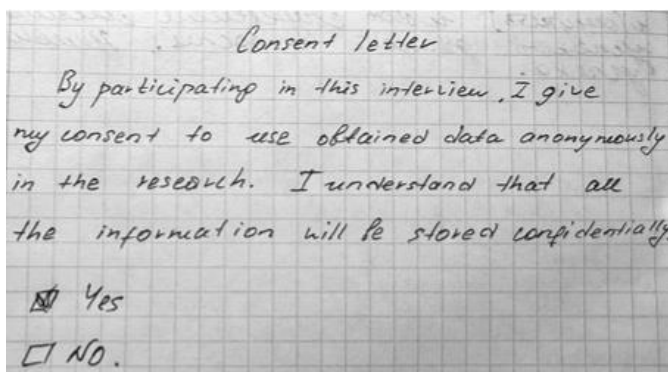 Consent letter
By participating in this interview, I give
my consent to use obtained data anonymously
in the research. I understand that all
the information will be stored confidentially
☒ Yes
☐ No.